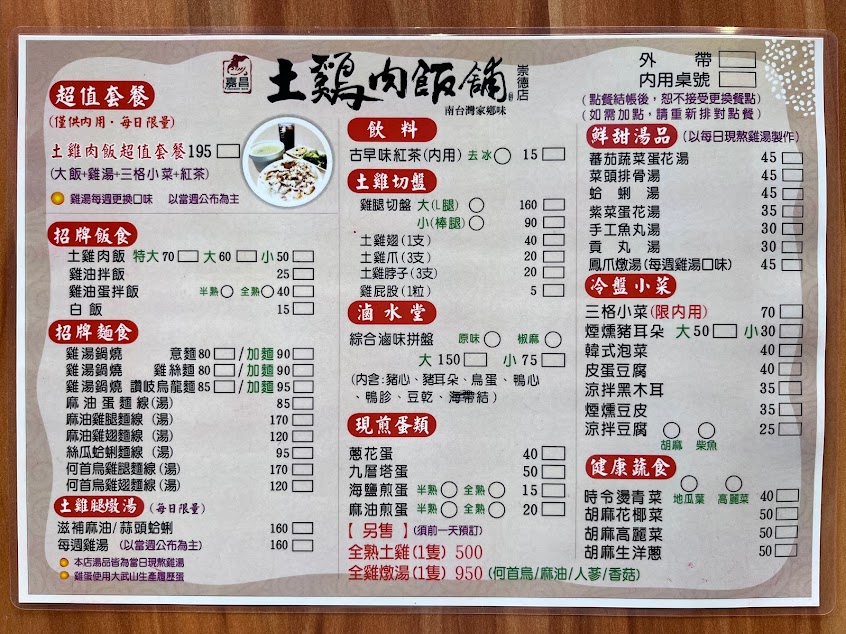 嘉昌
土鷄肉飯舖
崇德店
南台灣家鄉味
外帶
內用桌號
(點餐結帳後，恕不接受更換餐點)
(如需加點，請重新排對點餐)
超值套餐
(僅供內用・每日限量)
土雞肉飯超值套餐195
(大飯+雞湯+三格小菜+紅茶)
雞湯每週更換口味 以當週公布為主
招牌飯食
土雞肉飯 特大70 大60 小50
雞油拌飯 25
雞油蛋拌飯 半熟 全熟 40
白飯 15
招牌麵食
雞湯鍋燒 意麵80 /加麵90
雞湯鍋燒 雞絲麵80 /加麵90
雞湯鍋燒 讚岐烏龍麵85 /加麵95
麻油蛋麵線(湯) 85
麻油雞腿麵線(湯) 170
麻油雞翅麵線(湯) 120
絲瓜蛤蜊麵線(湯) 95
何首烏雞腿麵線(湯) 170
何首烏雞翅麵線(湯) 120
土雞腿燉湯(每日限量)
滋補麻油/蒜頭蛤蜊 160
每週雞湯 (以當週公布為主) 160
本店湯品皆為當日現熬雞湯
雞蛋使用大武山生產履歷蛋
飲料
古早味紅茶(內用) 去冰 15
土雞切盤
雞腿切盤 大(L腿) 160
小(棒腿) 90
土雞翅(1支) 40
土雞爪(3支) 20
土雞脖子(3支) 20
雞屁股(1粒) 5
滷水堂
綜合滷味拼盤 原味 椒麻
大150 小75
(內含:豬心、豬耳朵、鳥蛋、鴨心
、鴨胗、豆乾、海帶結)
現煎蛋類
蔥花蛋 40
九層塔蛋 50
海鹽煎蛋 半熟 全熟 15
麻油煎蛋 半熟 全熟 20
【另售】(須前一天預訂)
全熟土雞(1隻) 500
全雞燉湯(1隻) 950 (何首烏/麻油/人蔘/香菇)
鮮甜湯品(以每日現熬雞湯製作)
蕃茄蔬菜蛋花湯 45
菜頭排骨湯 45
蛤蜊湯 45
紫菜蛋花湯 35
手工魚丸湯 30
貢丸湯 30
鳳爪燉湯(每週雞湯口味) 45
冷盤小菜
三格小菜(限內用) 70
煙燻豬耳朵 大50 小30
韓式泡菜 40
皮蛋豆腐 40
涼拌黑木耳 35
煙燻豆皮 35
涼拌豆腐 25
胡麻 柴魚
健康蔬食
時令燙青菜 地瓜葉 高麗菜 40
胡麻花椰菜 50
胡麻高麗菜 50
胡麻生洋蔥 50